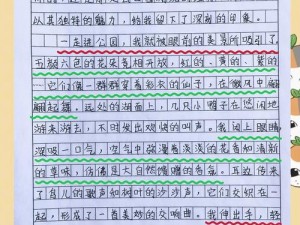 从其独特的魅力,给我留下了深刻的印象。
一走进公园,我就被眼前的美景所吸引了,
五颜六色的花朵竞相开放,红的、黄的、紫的
一它们像一群群穿着彩衣的仙子,在微风中翩
翩起舞。远处的湖面上,几只小鸭子在悠闲地
游来游去,不时发出欢快的叫声。我闭上眼睛
深吸一口气,空气中弥漫着淡淡的花香和清新
的草味,仿佛是大自然馈赠的香气。耳边传来
了鸟儿的歌声和树叶的沙沙声,它们交织在一
起,形成了一首美妙的交响曲。我伸出手,轻